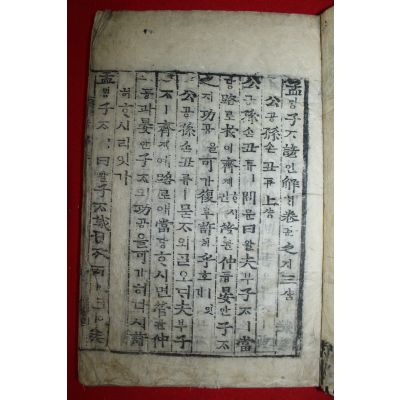 孟ᄆᆡᆼ子ᄌᆞ諺언解ᄒᆡ卷권之지三삼
公공孫손丑튜上샹
公공孫손丑튜ㅣ問문曰왈夫부子ᄌᆞㅣ當
당路로於어齊졔ᄒᆞ시면管관仲듕晏안子ᄌᆞ
之지功공을可가復부許허乎호ㅣ잇가
公공孫손丑튜ㅣ묻ᄌᆞ와ᄀᆞᆯ오ᄃᆡ夫부子
ᄌᆞㅣ齊졔예路로애當당ᄒᆞ시면管관仲
듕과晏안子ᄌᆞ의功공을可가히다시許
허ᄒᆞ시리잇가
孟ᄆᆡᆼ子ᄌᆞㅣ曰왈子ᄌᆞㅣ誠셩